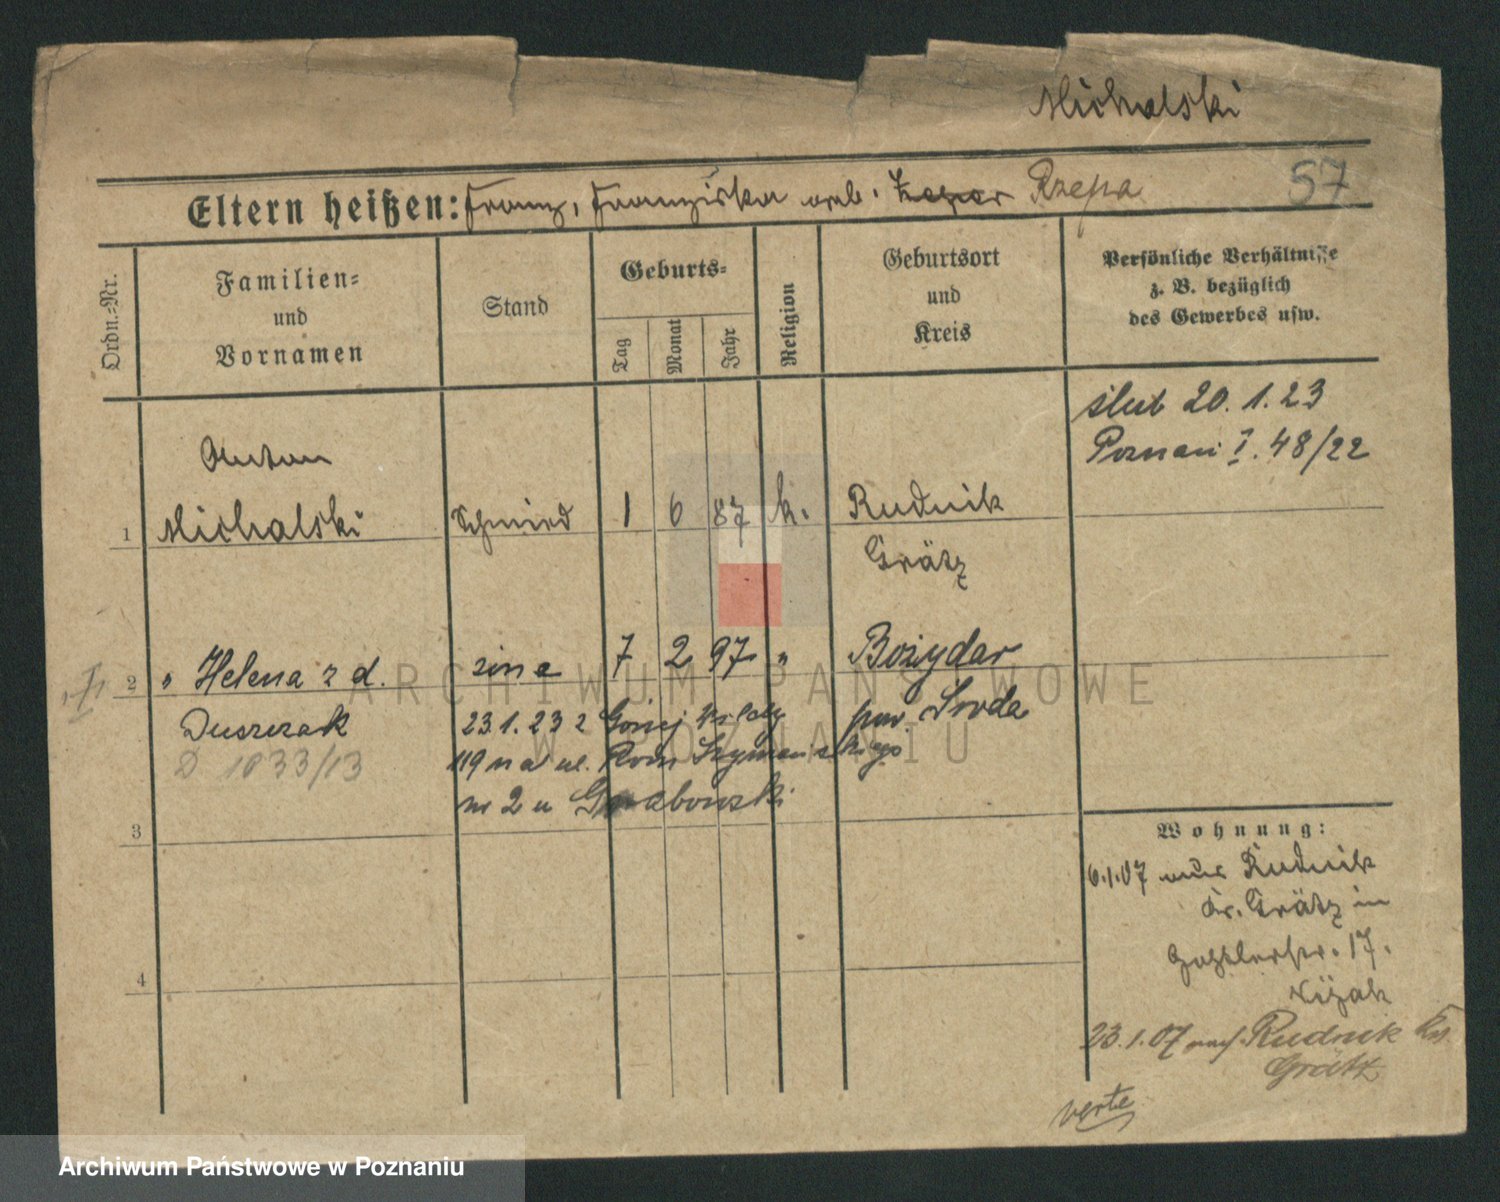 Michalski
Eltern heißen: Franz, Franziska geb. Rzepa
57
Ordn.-Nr.
Familien-
und
Vornamen
Stand
Geburts-
Tag
Monat
Jahr
Religion
Geburtsort
und
Kreis
Persönliche Verhältnisse
z. B. bezüglich
des Gewerbes usw.
ślub 20. 1. 23
Poznań I. 48/22
Anton
1 Michalski Schmied 1 6 87 k. Rudnik
Grätz
2 " Helena z d. żona 7 2 97 " Bożydar
Duszczak
pow. Środa
D 1033/13
23.1.23 z
119 na ul. Rom Szymańskiego
nr 2 u Grabowski
3
4
Wohnung:
6.1.07 aus Rudnik
Kr. Grätz in
17.
23.1.07 nach Rudnik Krs
Grätz
verte
ARCHIWUM PAŃSTWOWE
W POZNANIU
Archiwum Państwowe w Poznaniu